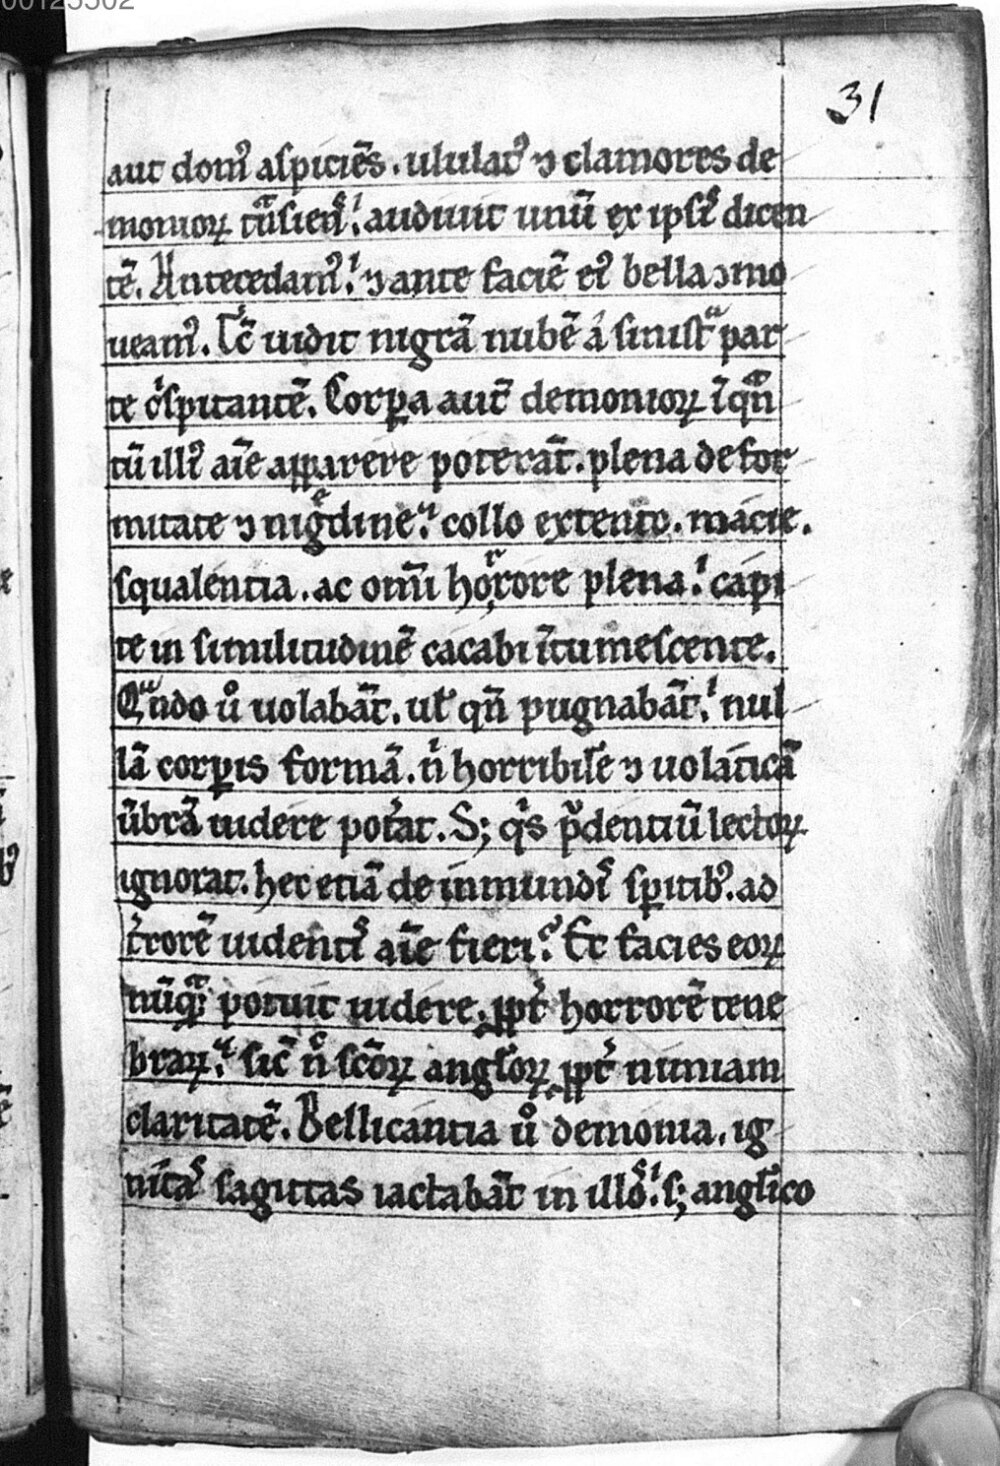 00125502
31
aut domꝰ aſpiciēs. ululatꝰ ⁊ clamores de
monioꝝ tͣnſienſ. audiuit unū ex ipſis dicen
tē. Antecedamꝰ. ⁊ ante faciē eiꝰ bella ɔmo
ueamꝰ. Tc̄ uidit nigrā nubē á ſiniſtͣ par
te ɔſpitantē. Corꝑa aut̄ demonioꝝ īqn̄
tū illiꝰ aīe apparere poterāt. plena defor
mitate ⁊ nigͤdine. collo extento. macie.
ſqualentia. ac om̄i horrore plena. capi
te in ſimilitudinē cacabi ītumeſcente.
Qͣndo uͦ uolabāt. ul̓ qn̄ pugnabāt. nul
lā corꝑis formā. nͥ horribilē ⁊ uolaticā
ūbrā uidere pot̓at. S; qͥs p̓dentiū lectoꝝ
ignorat. hec etiā de inmundiſ ſpitibꝰ. ad
t̓rorē uidentiſ aīe fieri. Et facies eoꝝ
nūqͣ; potuit uidere. ꝓpt̓ horrorē tene
braꝝ. ſic̄ nͨ ſcōꝝ angl̓oꝝ ꝓpt̓ nimiam
claritatē. Bellicantia uͦ demonia. ig
nitaſ ſagittas iactabāt in illoſ. ſ; angl̓ico